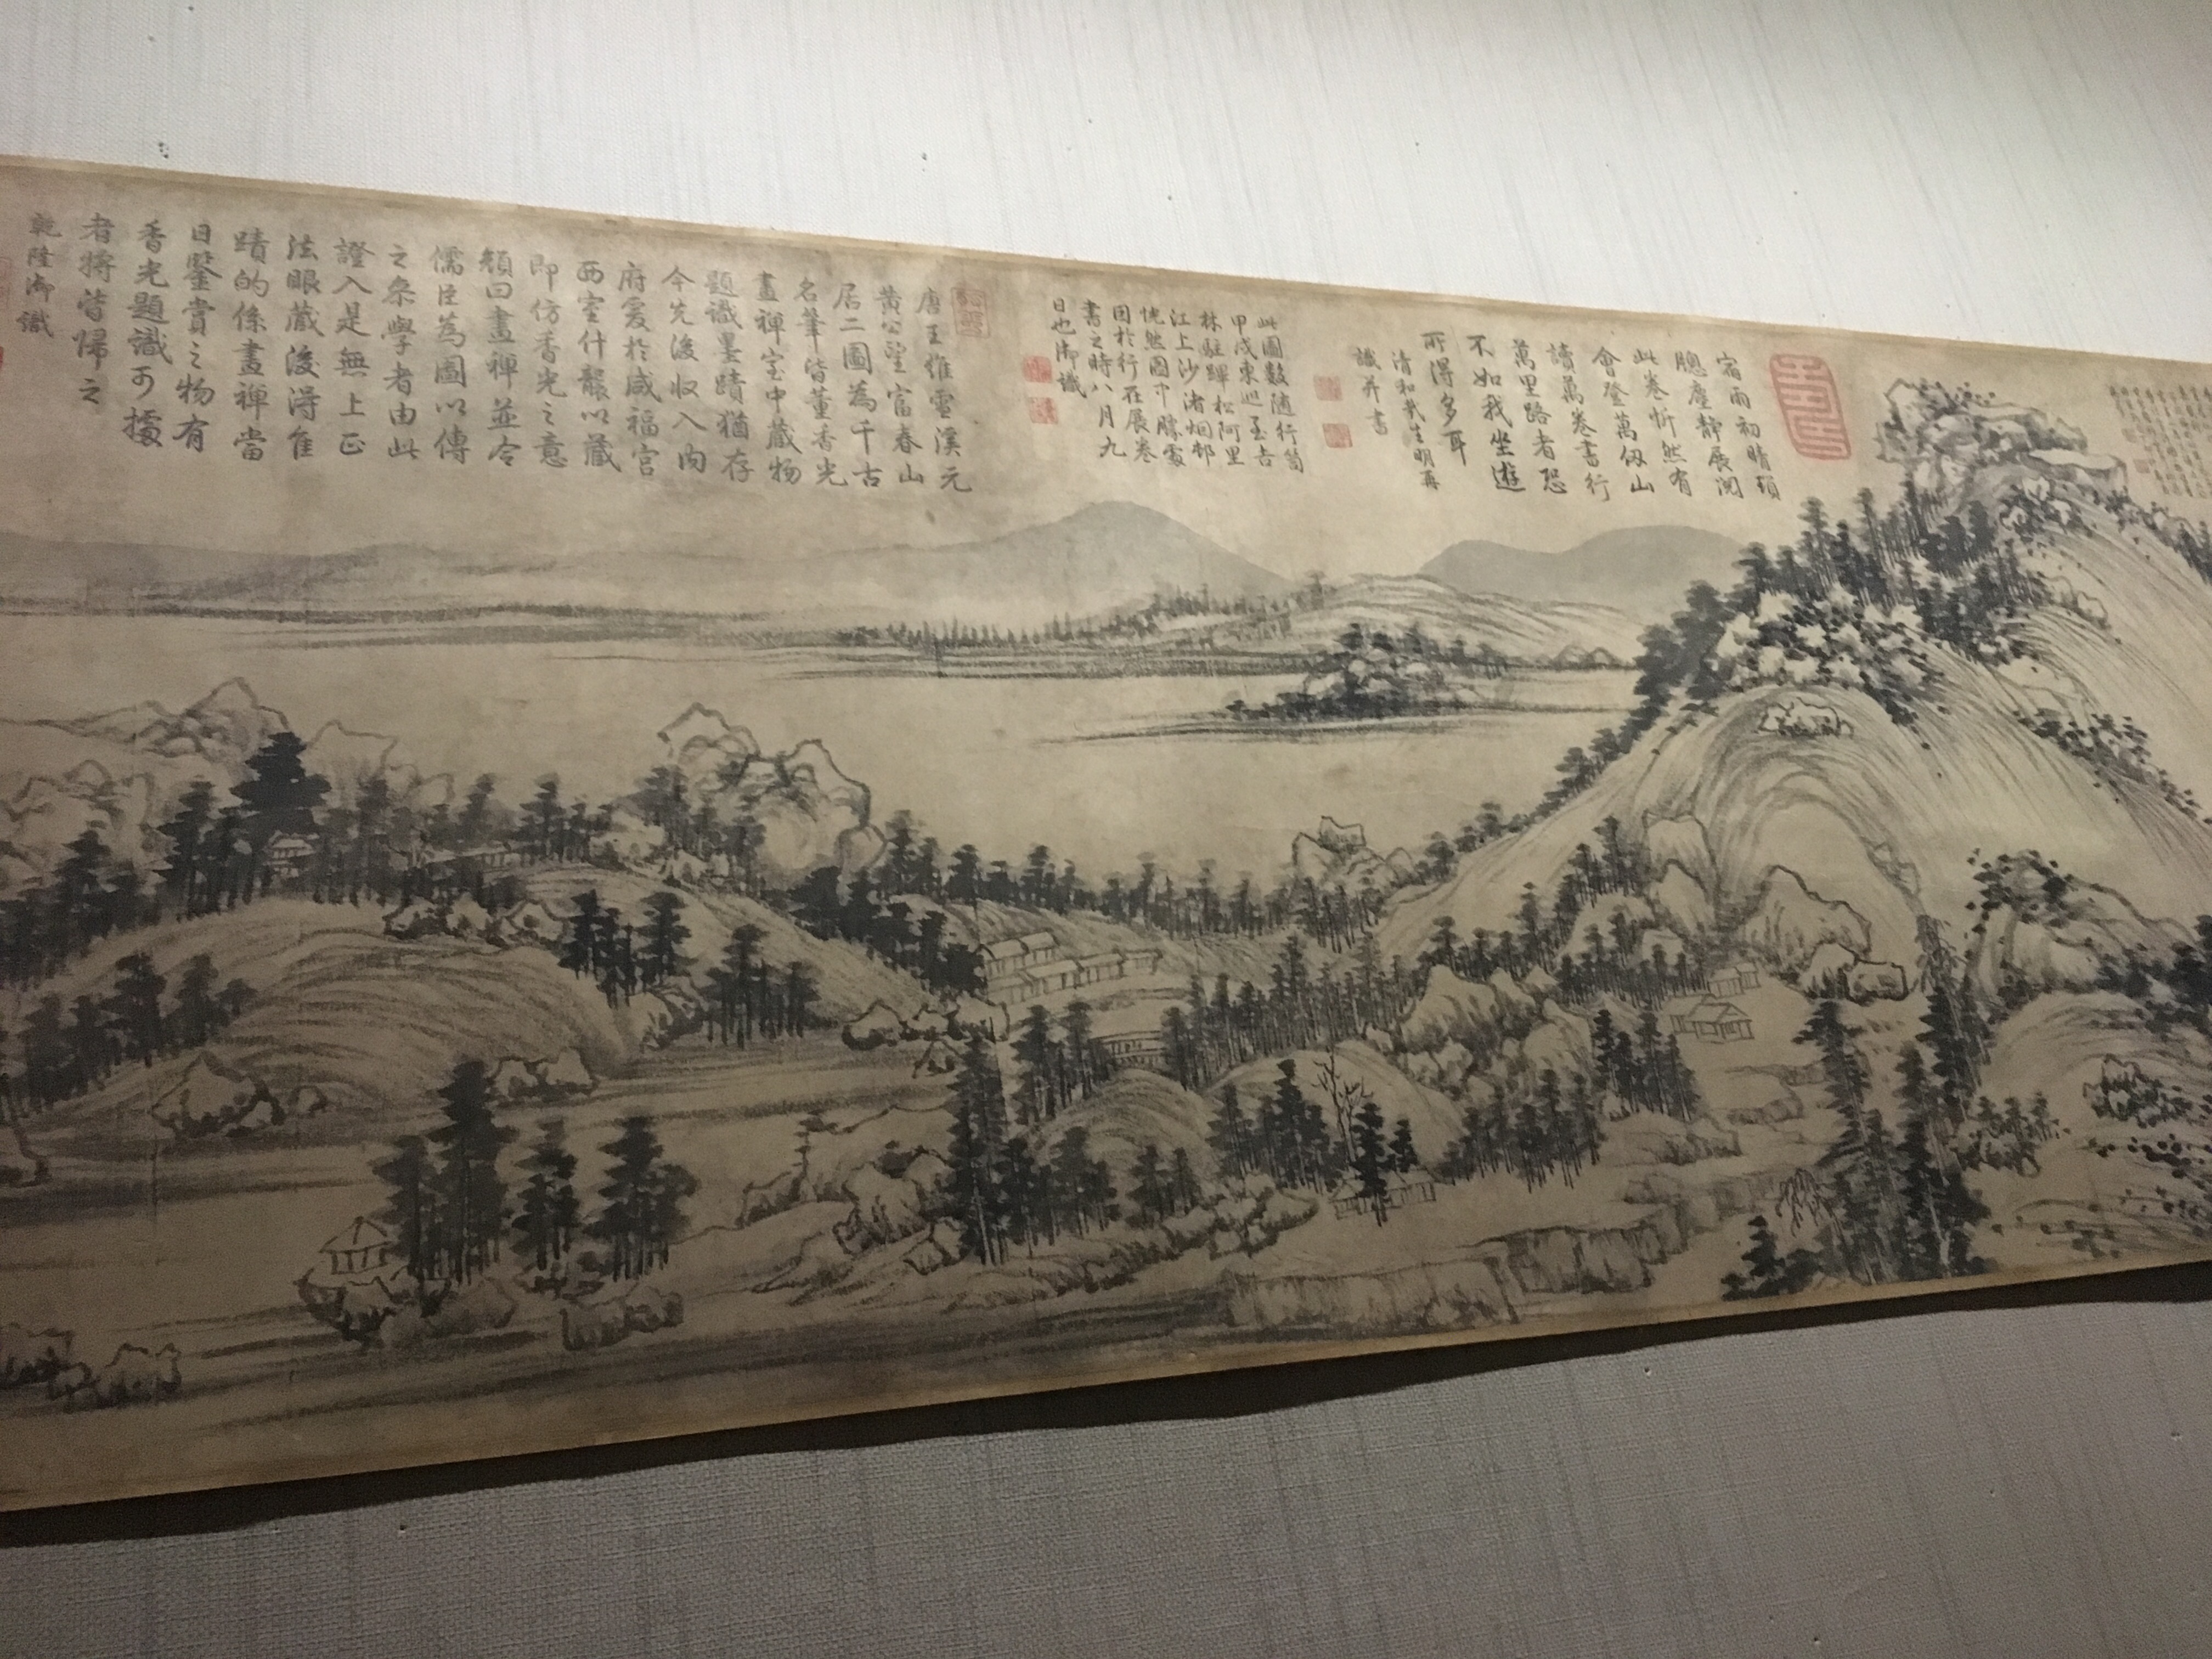 宿雨初晴頊
牕塵静展閲
此卷忻然有
會登萬仭山
讀萬卷書行
萬里路者恐
不如我坐遊
所得多耳
清和哉生明再
識并書
此圖數随行笥
甲戌東廵至吉
林駐蹕松阿里
江上沙渚烟邨
恍然圖中勝處
因於行在展卷
書之時八月九
日也御識
唐王維雪溪元
黄公望富春山
居二圖為千古
名筆皆董香光
畫禪室中藏物
題識墨蹟猶存
今先後収入内
府爰於咸福宮
西室什襲以藏
即仿香光之意
顔曰畫禪並令
儒臣為圖以傳
之叅學者由此
證入是無上正
法眼藏後得隹
蹟的係畫禪當
日鑒賞之物有
香光題識可據
者將皆歸之
乾隆御識